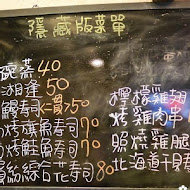 隱藏版菜單
碗蒸40
湘蓮50
鰻壽司一貫50
烤旗魚壽司70
烤鮭魚壽司70
繽紛綜合花壽司80
檸檬雞翅
烤雞肉串
照燒雞腿
北海道干貝